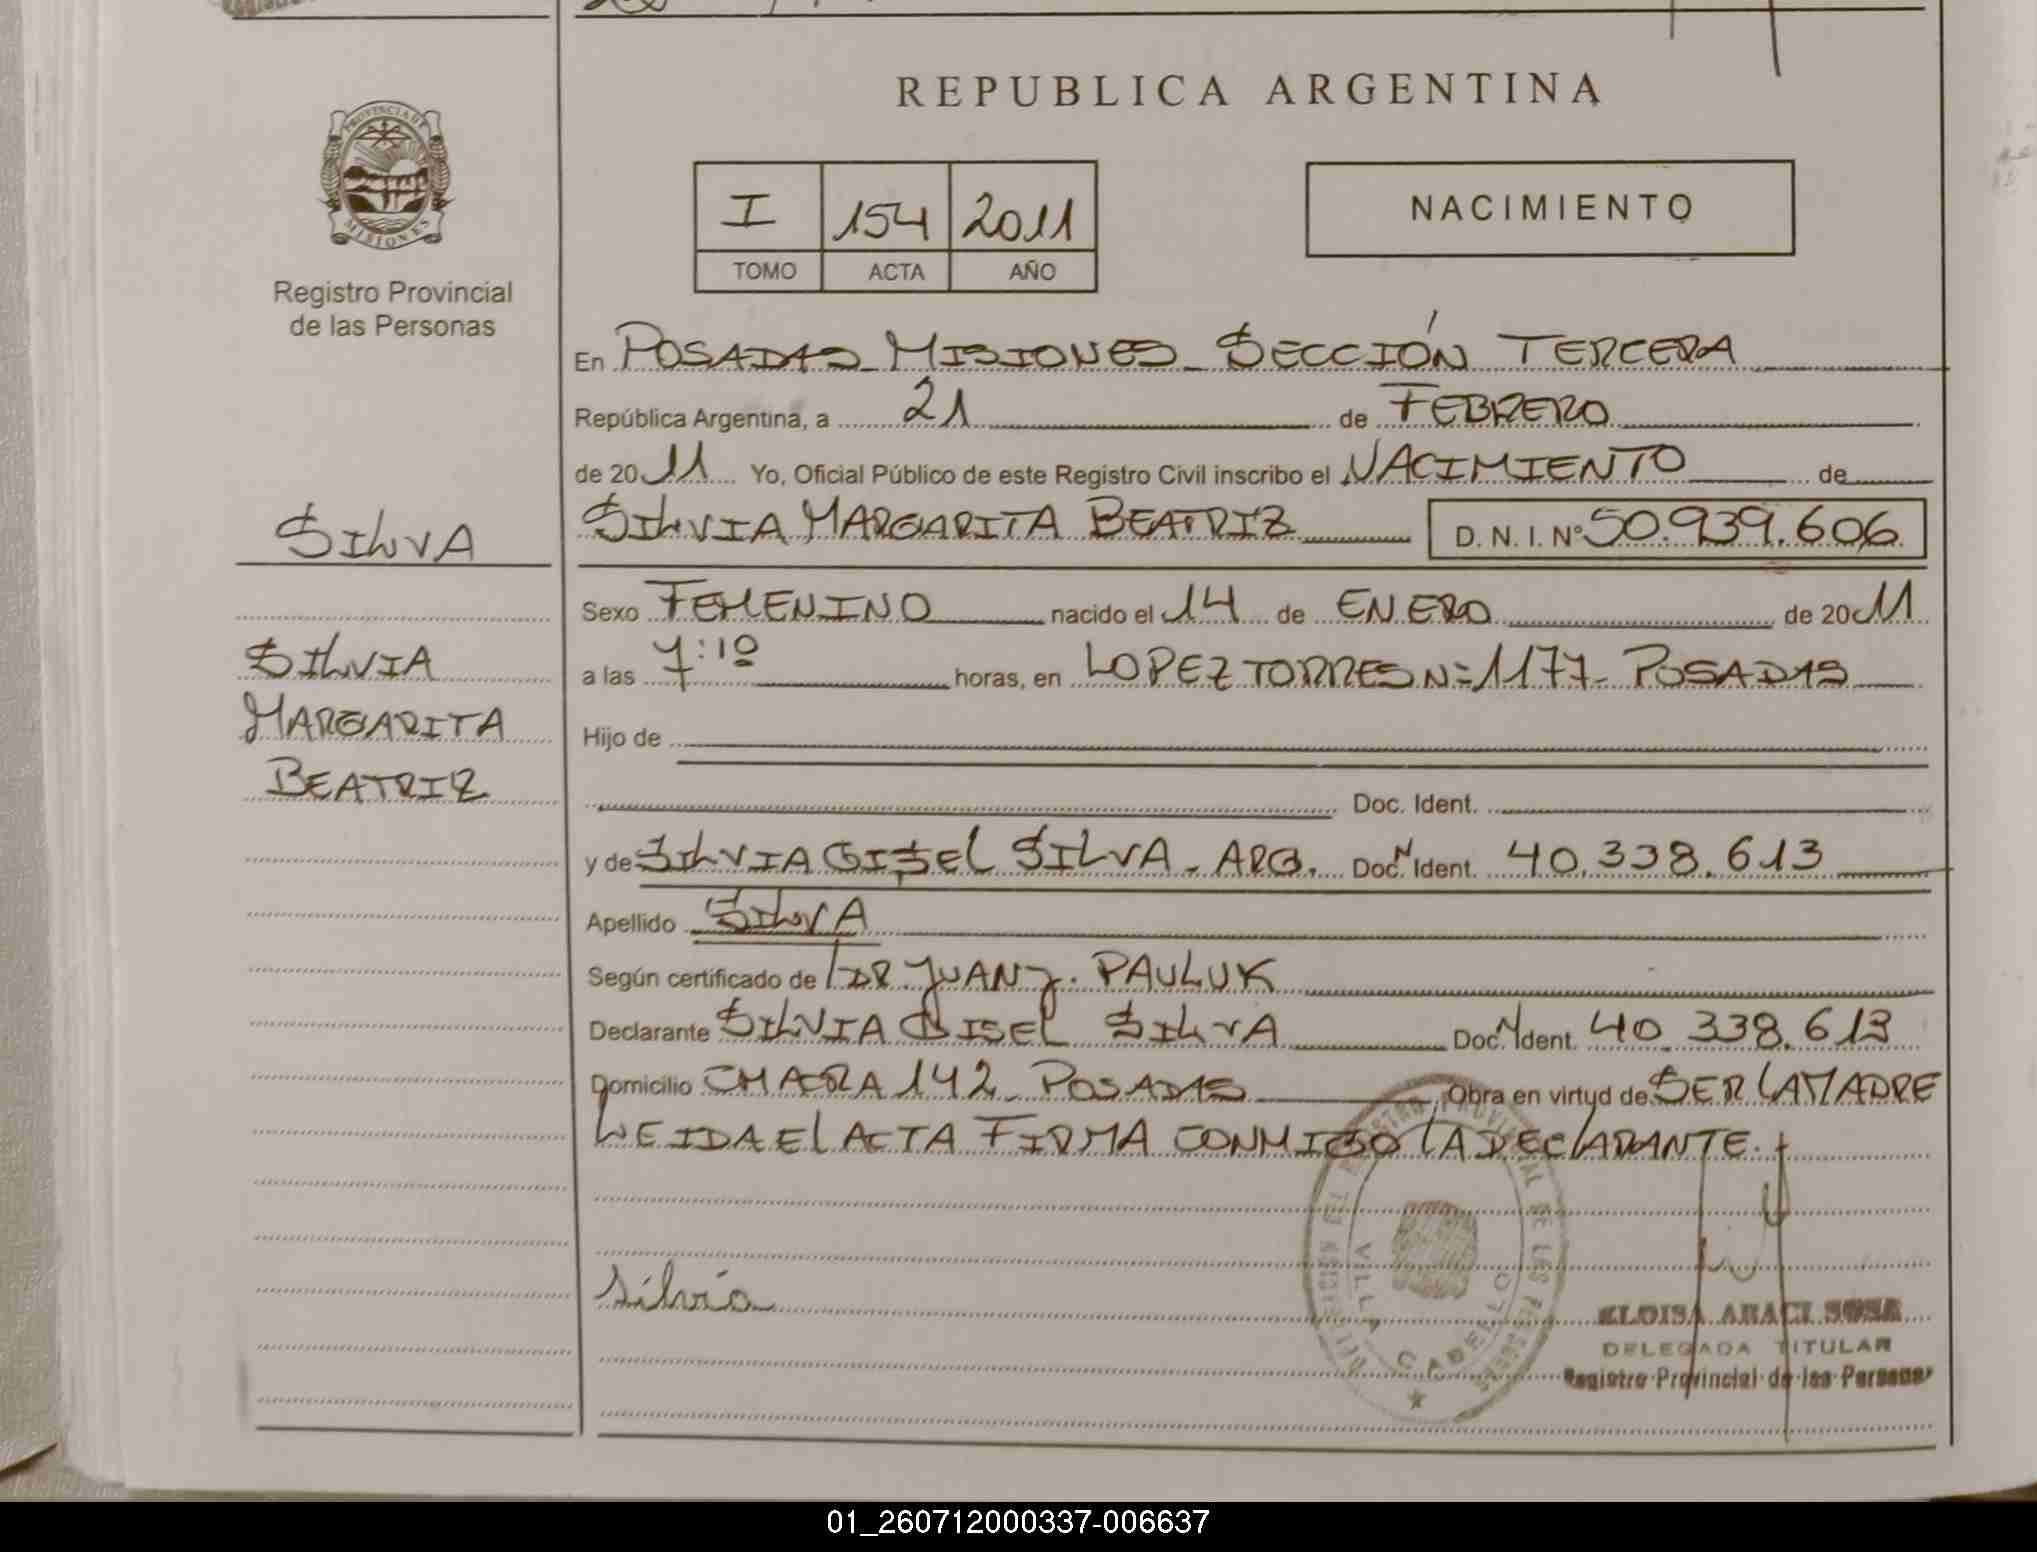 REPUBLICA ARGENTINA
PROVINCIA DE
MISIONES
Registro Provincial
de las Personas
I 154 2011
TOMO ACTA AÑO
NACIMIENTO
En POSADAS MISIONES SECCIÓN TERCERA
República Argentina, a 21 de FEBRERO
de 2011 Yo, Oficial Público de este Registro Civil inscribo el NACIMIENTO de
SILVA
SILVIA MARGARITA BEATRIZ D. N. I. Nº 50.939.606
Sexo FEMENINO nacido el 14 de ENERO de 2011
SILVIA
MARGARITA
BEATRIZ
a las 7:10 horas, en LOPEZ TORRES Nº 1177 - POSADAS
Hijo de
Doc. Ident.
y de SILVIA GISEL SILVA - ARG. Doc. N Ident. 40.338.613
Apellido SILVA
Según certificado de DR. JUAN J. PAULUK
Declarante SILVIA GISEL SILVA Doc. N Ident. 40.338.613
Domicilio CHACRA 142 - POSADAS Obra en virtud de SER LA MADRE
LEIDA EL ACTA FIRMA CONMIGO LA DECLARANTE.
Silvia
VILLA CABELLO
ELOISA ARACI SOSA
DELEGADA TITULAR
Registro Provincial de las Personas
01_260712000337-006637